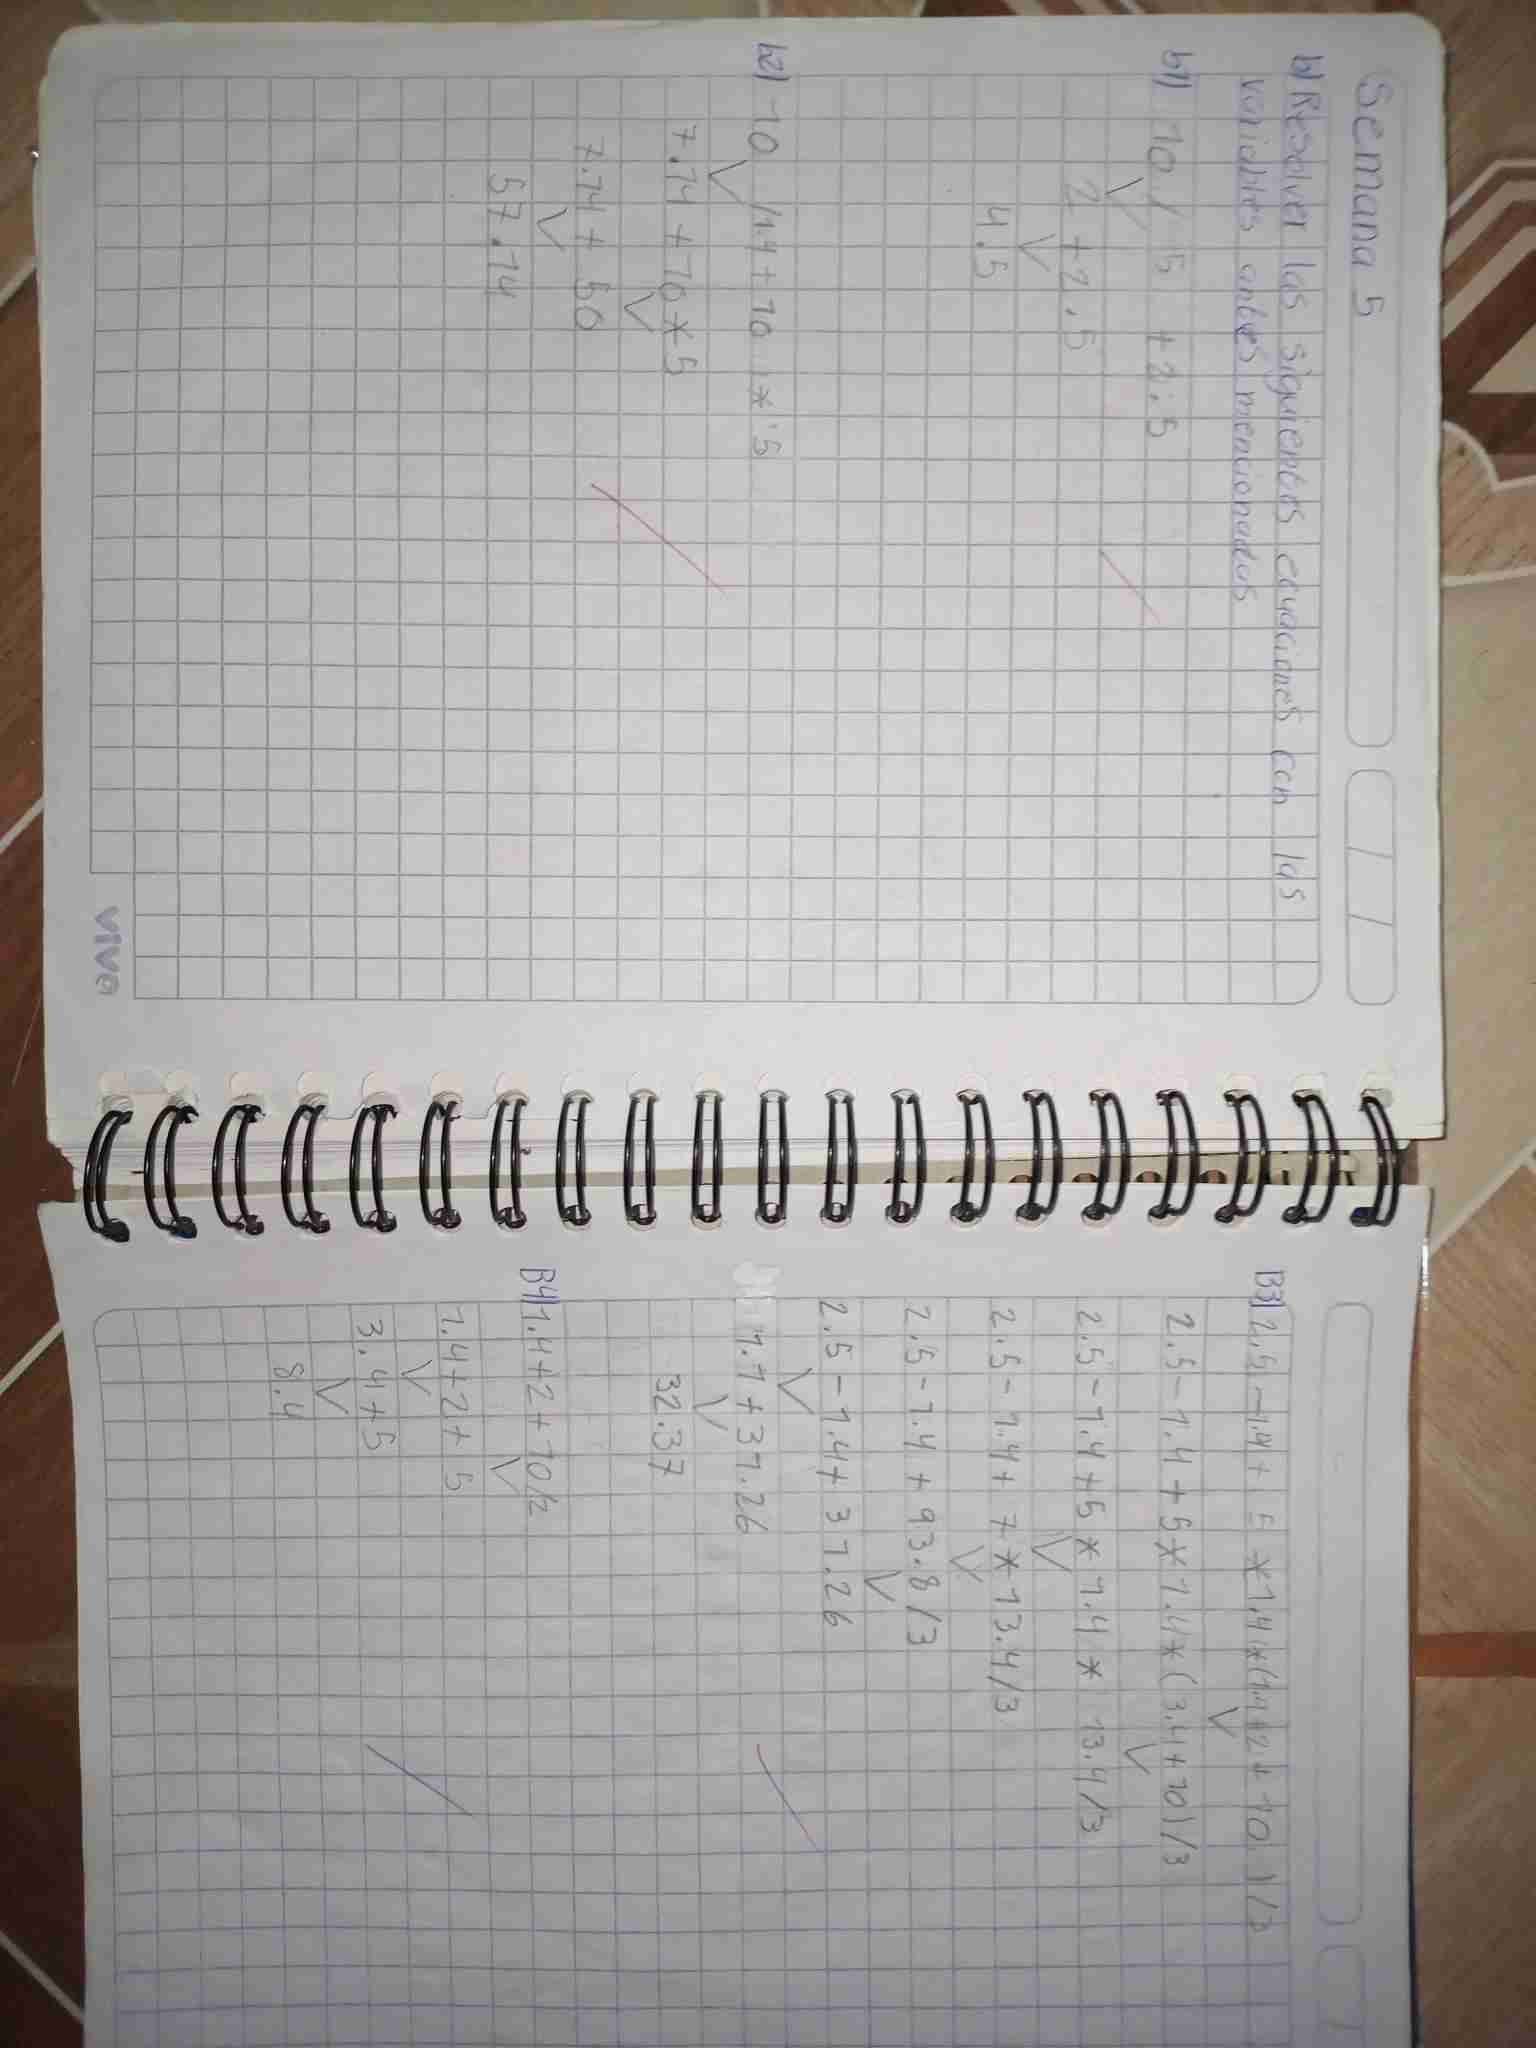 Semana 5
b) Resolver las siguientes ecuaciones con las
variables antes mencionadas
b1) 10 / 5 + 2.5
2 + 2.5
4.5
b2) 10 / 1.4 + 10 * 5
7.14 + 10 * 5
7.14 + 50
57.14
vivo
B3) 2.5 - 1.4 + 5 * 1.4 * (1.4 + 2 + 10) / 3
2.5 - 1.4 + 5 * 1.4 * (3.4 + 10) / 3
2.5 - 1.4 + 5 * 1.4 * 13.4 / 3
2.5 - 1.4 + 7 * 13.4 / 3
2.5 - 1.4 + 93.8 / 3
2.5 - 1.4 + 31.26
1.1 + 31.26
32.37
B4) 1.4 + 2 + 10/2
1.4 + 2 + 5
3.4 + 5
8.4